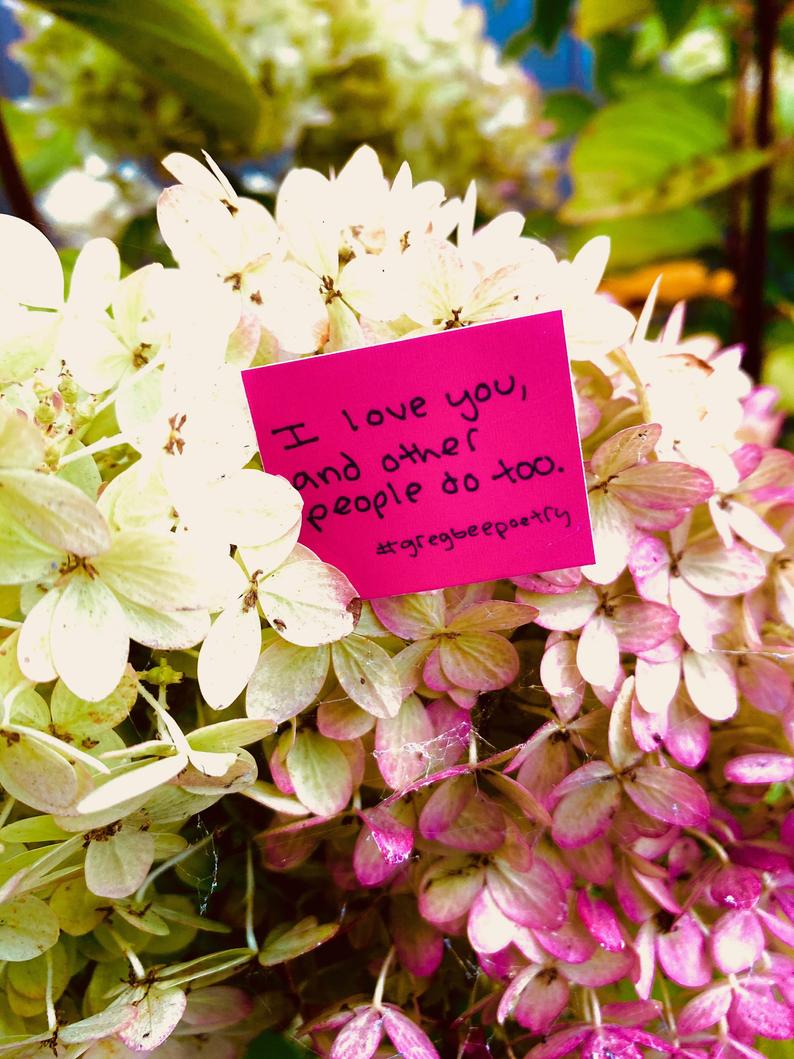 I love you,
and other
people do too.
#gregbeepoetry